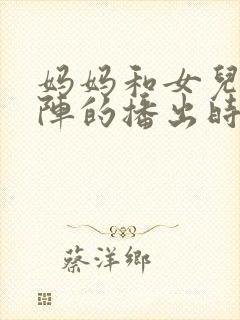 妈妈和女兒
陣的播出時
蔡洋鄉